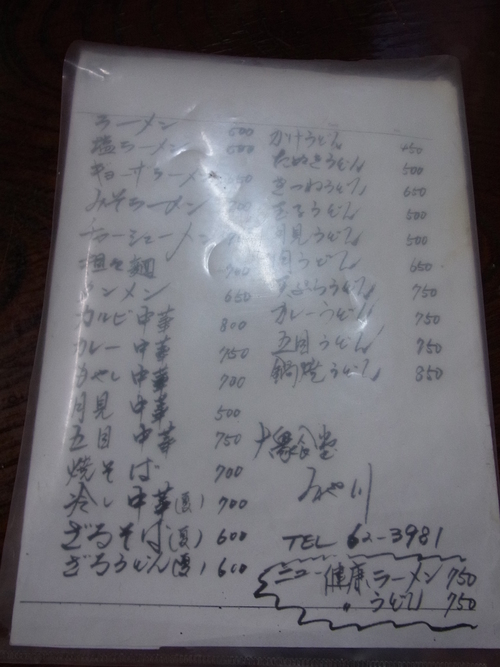 ラーメン 500
塩ラーメン 500
ギョーザラーメン
みそラーメン
チャーシューメン
坦々麺 700
タンメン 650
カルビ中華 800
カレー中華 750
もやし中華 700
月見中華 500
五目中華 750
焼そば 700
冷し中華(夏) 700
ざるそば(夏) 600
ざるうどん(夏) 600
かけうどん 450
たぬきうどん 500
きつねうどん 650
玉子うどん 500
月見うどん 500
肉うどん 650
天ぷらうどん 750
カレーうどん 750
五目うどん 750
鍋焼うどん 850
大衆食堂
みや川
TEL 62-3981
ニュー健康ラーメン 750
〃 うどん 750